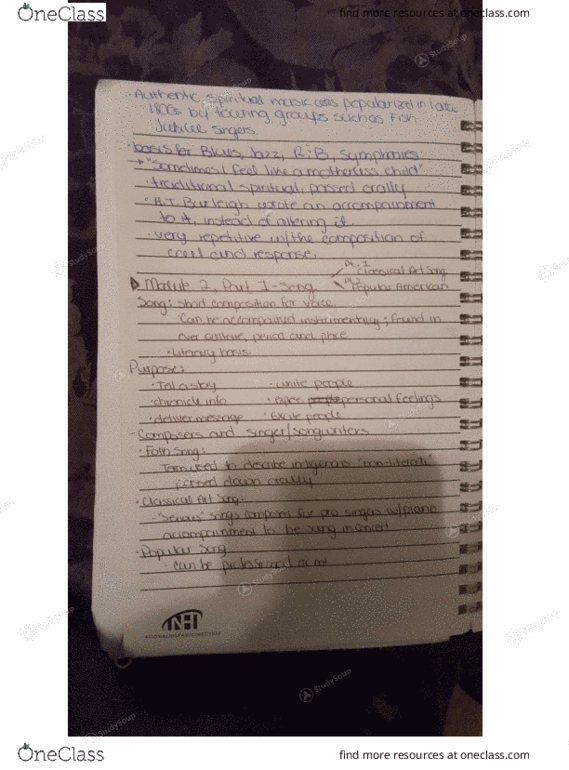 OneClass
find more resources at oneclass.com
· Authentic spiritual music was popularized in late
1800s by touring groups such as Fish
Jubilee singers.
· basis for Blues, Jazz, R&B, symphonies
→ "Sometimes I feel like a motherless child"
· traditional spiritual, passed orally
· H.T. Burleigh wrote an accompaniment
to it, instead of altering it.
· very repetitive w/the composition of
call and response.
Pt. I Classical Art Song
Module 2, Part I - Song
Popular American
Song: short composition for voice.
· Can be accompanied instrumentally; found in
ever culture, period and place
· Literary basis.
Purpose:
· Tell a story · unite people
· chronicle info · express personal feelings
· deliver message · Excite people
- Composers and singer/songwriters
· Folk Song:
Term used to describe indigenous "non-literate"
passed down orally
· Classical Art Song:
- "serious" songs composed for pro singers w/piano
accompaniment to be sung in concert
· Popular Song
- can be professional or not
INHI
StudySoup
OneClass
find more resources at oneclass.com